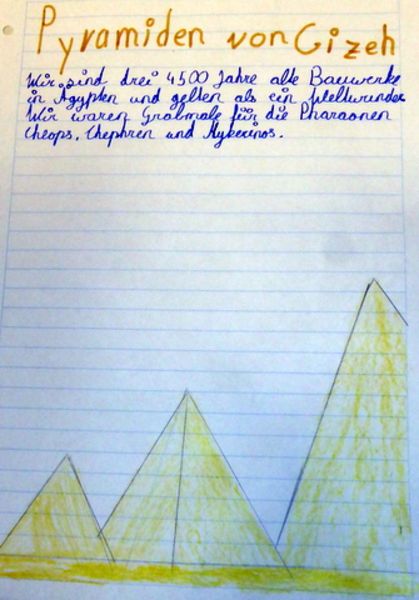 Pyramiden von Gizeh
Wir sind drei 4500 Jahre alte Bauwerke
in Ägypten und gelten als ein Weltwunder
Wir waren Grabmale für die Pharaonen
Cheops, Chephren und Mykerinos.